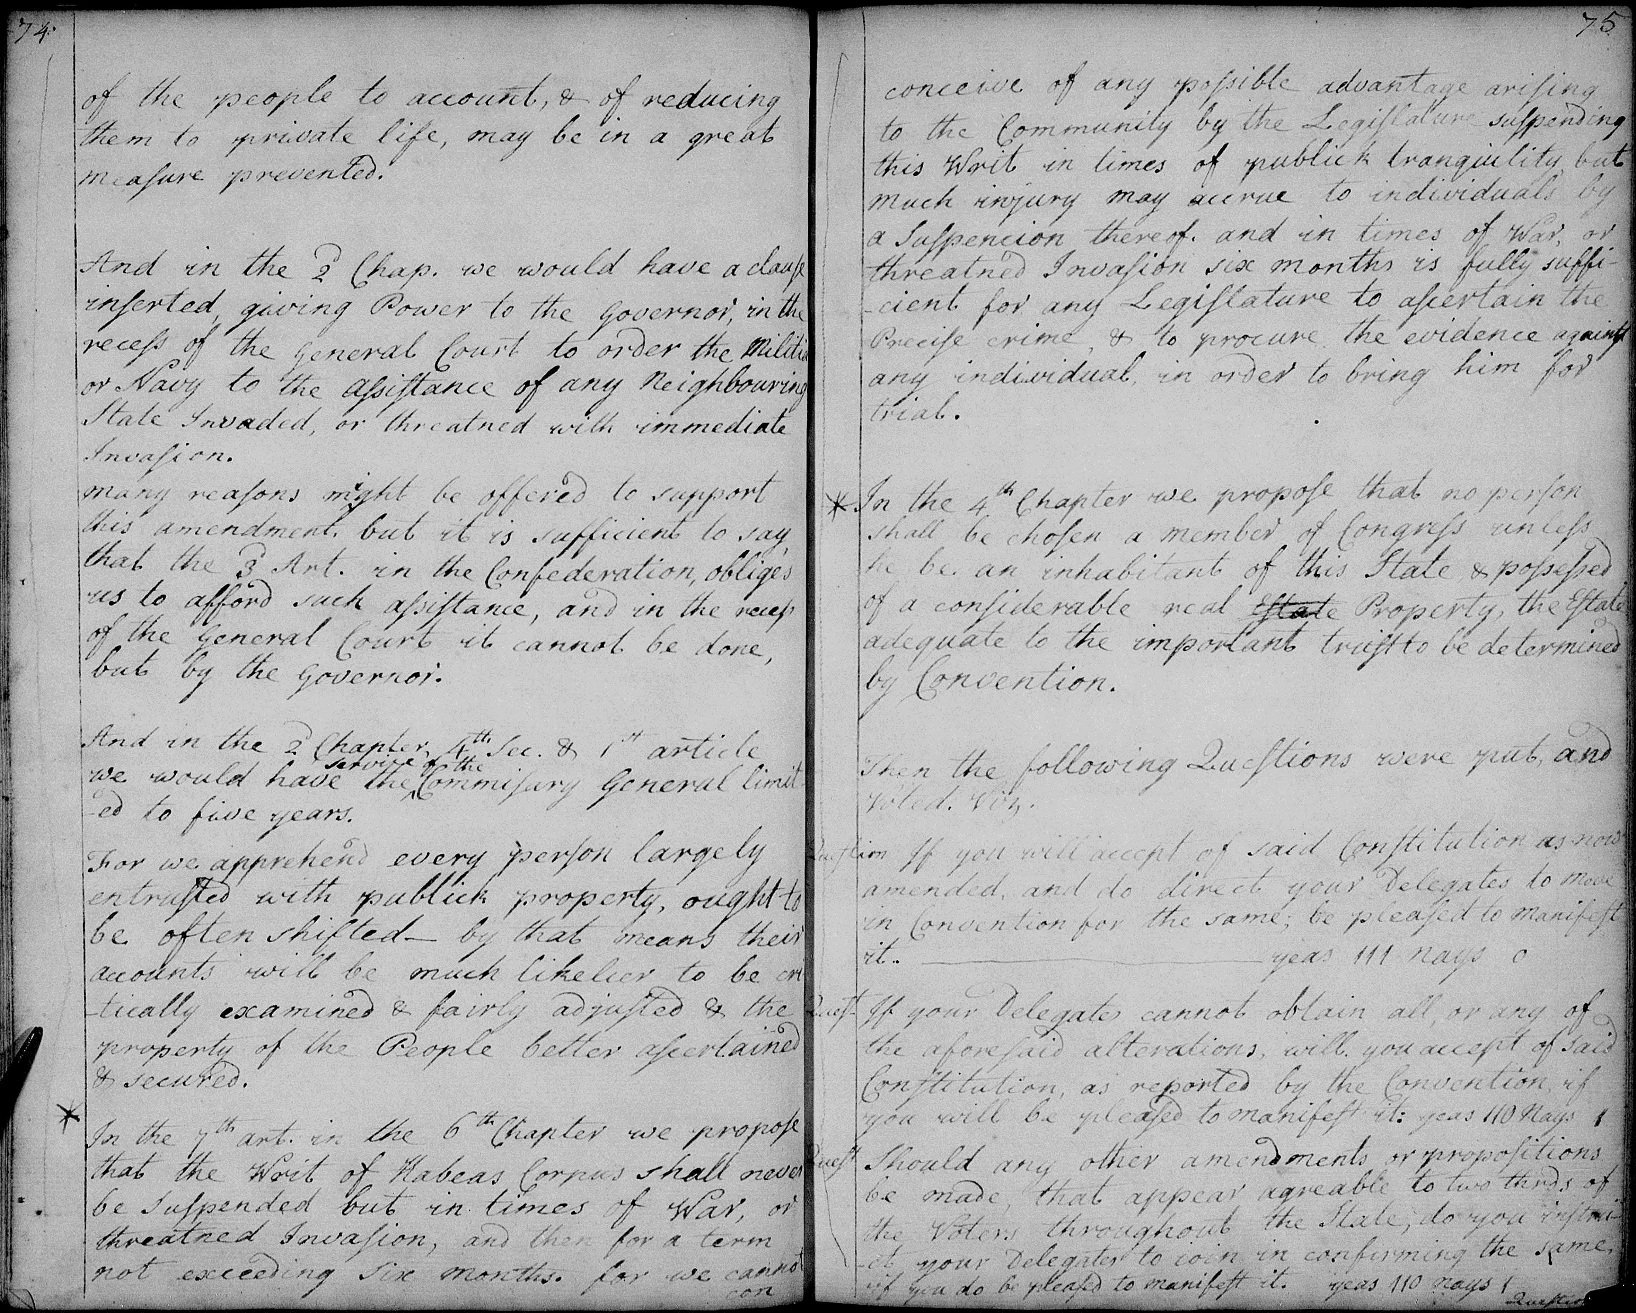 74
of the people to account, & of reducing
them to private life, may be in a great
meaſure prevented.
And in the 2 Chap. we would have a clauſe
inſerted, giving Power to the Governor, in the
receſs of the General Court to order the Militia
or Navy to the aſſiſtance of any Neighbouring
State Invaded, or threatned with immediate
Invaſion.
many reaſons might be offered to support
this amendment, but it is sufficient to say,
that the 3 Art. in the Confederation, obliges
us to afford such aſſiſtance, and in the receſs
of the General Court it cannot be done,
but by the Governor.
And in the 2 Chapter, 4th Sec. & 1st article
service of the
we would have the ^ Commiſary General limit
-ed to five years.
For we apprehend every perſon largely
entruſted with publick property, ought to
be often shifted— by that means their
accounts will be much likelier to be cri
-tically examined & fairly adjuſted & the
property of the People better aſcertained
& secured.
* In the 7th art. in the 6th Chapter we propoſe
that the Writ of Habeas Corpus shall never
be Suſpended but in times of War, or
threatned Invaſion, and then for a term
not exceeding Six months. for we cannot
con
75
conceive of any poſsible advantage ariſing
to the Community by the Legiſlature suſpending
this Writ in times of publick tranquility, but
much injury may accrue to individuals by
a Suſpencion thereof. and in times of War, or
threatned Invaſion six months is fully suffi-
-cient for any Legiſlature to aſcertain the
Preciſe crime, & to procure the evidence againſt
any individual, in order to bring him for
trial.
* In the 4th Chapter we propoſe that no perſon
shall be choſen a member of Congreſs unleſs
he be an inhabitant of this State & poſseſsed
of a conſiderable real Eſtate Property, the Eſtate
adequate to the important truſt to be determined
by Convention.
Then the following Queſtions were put, and
Voted. Viz.
Queſtion If you will accept of said Conſtitution as now
amended, and do direct your Delegates to move
in Convention for the same; be pleaſed to manifeſt
it. — yeas 111 nays 0
Queſt. If your Delegates cannot obtain all, or any of
the aforeſaid alterations, will you accept of said
Conſtitution, as reported by the Convention, if
you will be pleaſed to manifeſt it: yeas 110 Nays 1
Queſt Should any other amendments or propoſitions
be made, that appear agreable to two thirds of
the Voters throughout the State, do you inſtru-
-ct your Delegates to join in confirming the same,
if you do be pleaſed to manifeſt it. yeas 110 nays 1
Queſtion